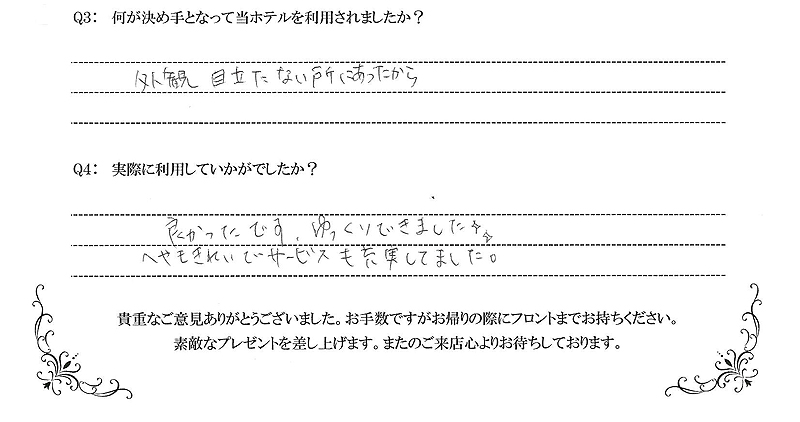 Q3: 何が決め手となって当ホテルを利用されましたか？
外観 目立たない所にあったから
Q4: 実際に利用していかがでしたか？
良かったです。ゆっくりできました☆☆
へやもきれいでサービスも充実してました。
貴重なご意見ありがとうございました。お手数ですがお帰りの際にフロントまでお持ちください。
素敵なプレゼントを差し上げます。またのご来店心よりお待ちしております。